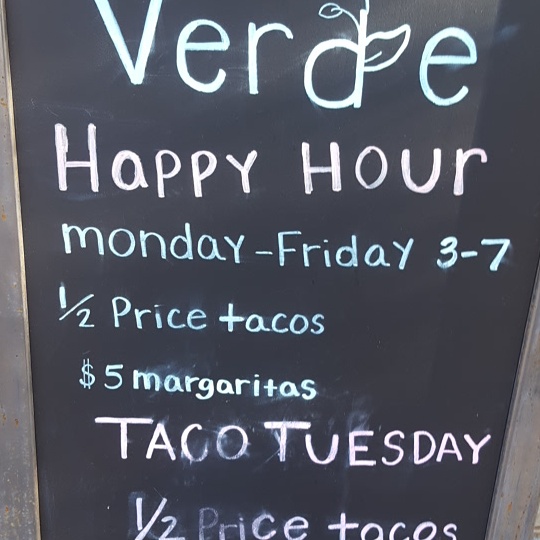 Verde
Happy Hour
monday-Friday 3-7
1/2 Price tacos
$5 margaritas
TACO TUESDAY
1/2 Price tacos